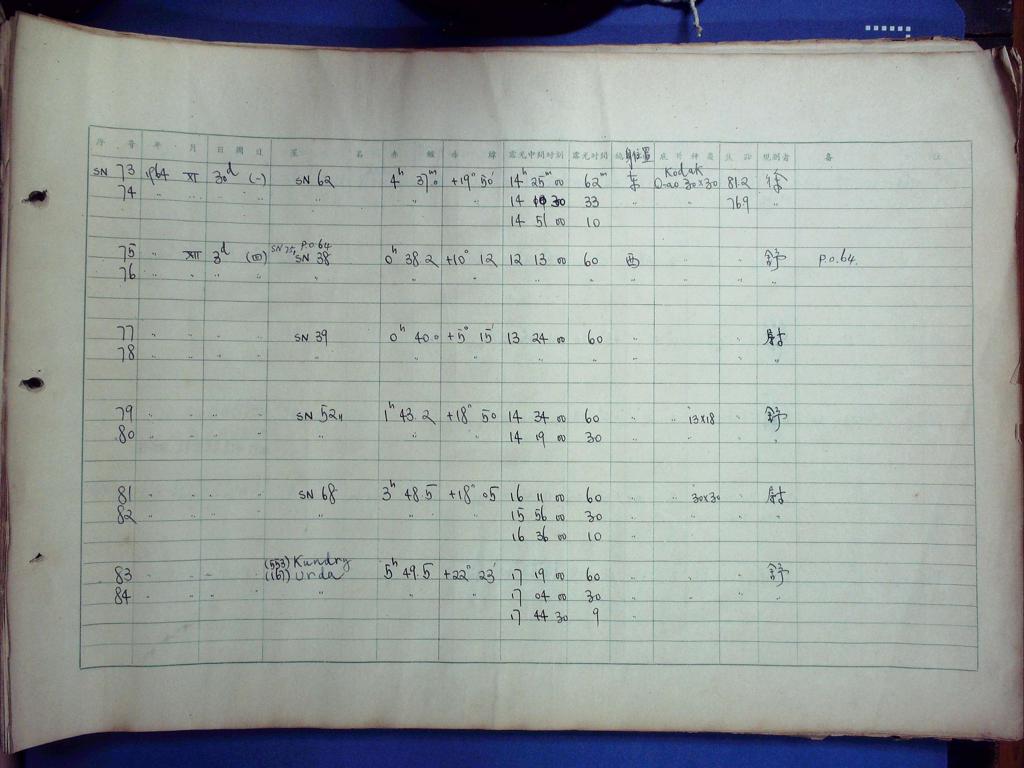 序 号 年 月 日 期 日 星 名 赤 經 赤 緯 露光中間时刻 露光时间 鏡身位置 底片种类 焦距 观測者 备 註
SN 73 1964 XI 30d (一) SN 62 4h 37m0 +19° 50' 14h 25m 00 62m 东 Kodak O-ao 30×30 81.2 徐
74 〃 〃 〃 〃 〃 〃 〃 14 10 30 33 〃 76.9 〃
14 51 00 10
SN 75, P.O.64
75 〃 XII 3d (四) SN 38 0h 38.2 +10° 12 12 13 00 60 西 〃 〃 舒 P.O.64.
76 〃 〃 〃 〃 〃 〃 〃 〃 〃 〃 〃 〃 〃
77 〃 〃 〃 〃 SN 39 0h 40.0 +5° 15' 13 24 00 60 〃 〃 〃
78 〃 〃 〃 〃 〃 〃 〃 〃 〃 〃 〃 〃
79 〃 〃 〃 〃 SN 52 1h 43.2 +18° 50 14 34 00 60 〃 〃 13×18 〃 舒
80 〃 〃 〃 〃 〃 〃 〃 14 19 00 30 〃 〃 〃 〃
81 〃 〃 〃 〃 SN 68 3h 48.5 +18° 05 16 11 00 60 〃 〃 30×30 〃
82 〃 〃 〃 〃 〃 〃 〃 15 56 00 30 〃 〃 〃 〃
16 36 00 10 〃
(553) Kundry
83 〃 〃 〃 (167) Urda 5h 49.5 +22° 23' 17 19 00 60 〃 〃 〃 舒
84 〃 〃 〃 〃 〃 〃 〃 17 04 00 30 〃 〃 〃 〃
17 44 30 9 〃